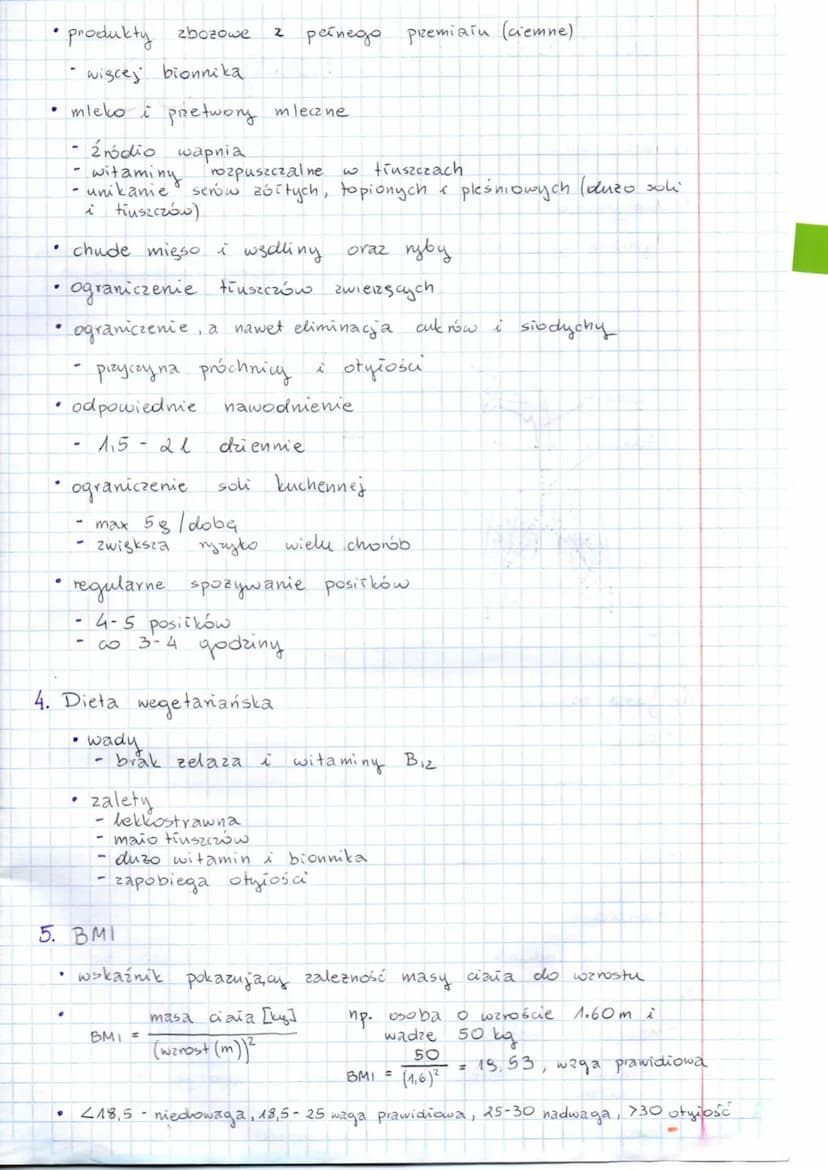 • produkty zbożowe z pełnego przemiału (ciemne)
- więcej błonnika
• mleko i przetwory mleczne
- źródło wapnia
- witaminy rozpuszczalne w tłuszczach
- unikanie serów żółtych, topionych i pleśniowych (dużo soli
i tłuszczów)
• chude mięso i wędliny oraz ryby
• ograniczenie tłuszczów zwierzęcych
• ograniczenie, a nawet eliminacja cukrów i słodyczy
- przyczyna próchnicy i otyłości
• odpowiednie nawodnienie
- 1,5 - 2 l dziennie
• ograniczenie soli kuchennej
- max 5g /dobę
- zwiększa ryzyko wielu chorób
• regularne spożywanie posiłków
- 4-5 posiłków
- co 3-4 godziny
4. Dieta wegetariańska
• wady
- brak żelaza i witaminy B₁₂
• zalety
- lekkostrawna
- mało tłuszczów
- dużo witamin i błonnika
- zapobiega otyłości
5. BMI
• wskaźnik pokazujący zależność masy ciała do wzrostu
• BMI = masa ciała [kg] / (wzrost (m))²
np. osoba o wzroście 1.60 m i
wadze 50 kg
BMI = 50 / (1,6)² = 19,53, waga prawidłowa
• <18,5 - niedowaga, 18,5 - 25 waga prawidłowa, 25-30 nadwaga, >30 otyłość